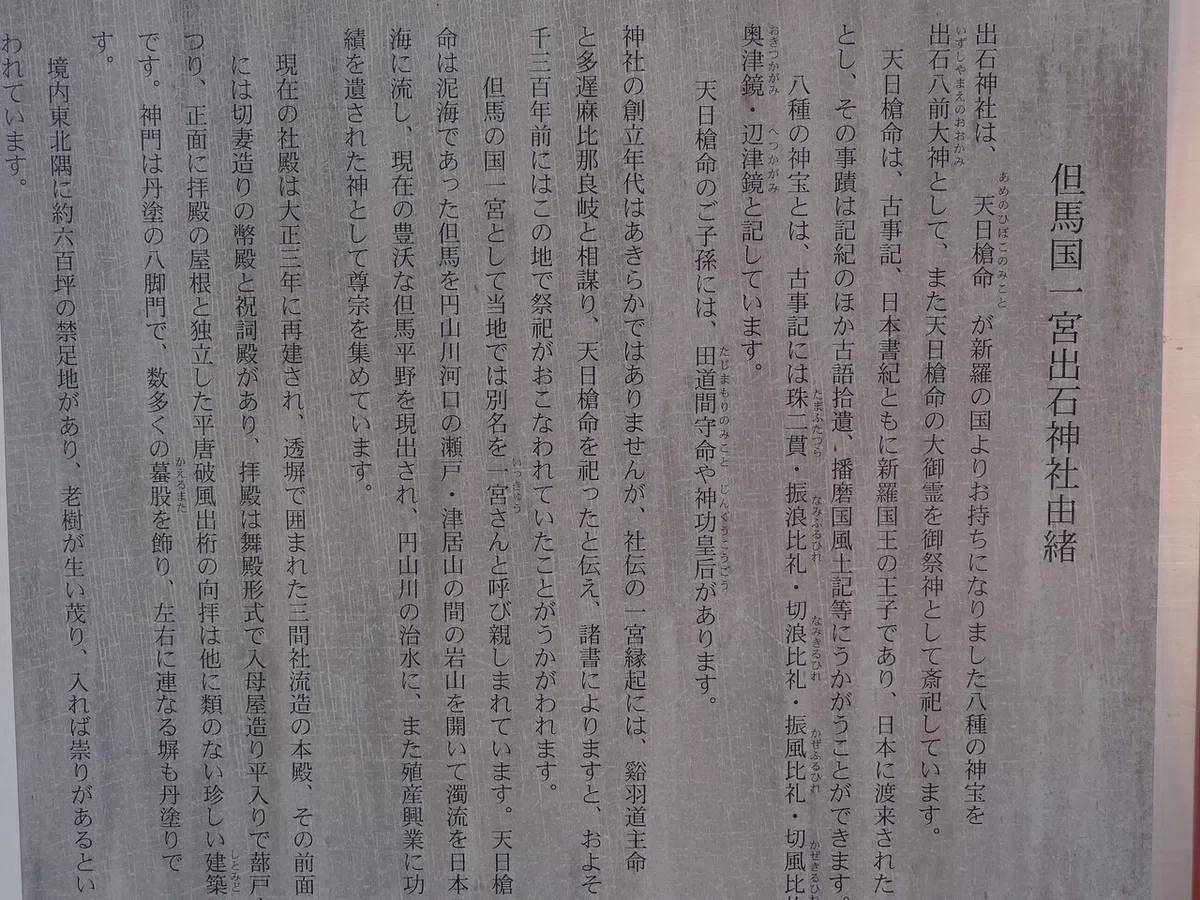 但馬国一宮出石神社由緒
あめのひぼこのみこと
出石神社は、天日槍命が新羅の国よりお持ちになりました八種の神宝を
いずしやまえのおおかみ
出石八前大神として、また天日槍命の大御霊を御祭神として斎祀しています。
天日槍命は、古事記、日本書紀ともに新羅国王の王子であり、日本に渡来された
とし、その事蹟は記紀のほか古語拾遺、播磨国風土記等にうかがうことができます。
たまふたつら なみふるひれ なみきるひれ かぜふるひれ かぜきるひ
八種の神宝とは、古事記には珠二貫・振浪比礼・切浪比礼・振風比礼・切風比
おきつかがみ へつかがみ
奥津鏡・辺津鏡と記しています。
たじまもりのみこと じんぐうこうごう
天日槍命のご子孫には、田道間守命や神功皇后があります。
神社の創立年代はあきらかではありませんが、社伝の一宮縁起には、谿羽道主命
と多遅麻比那良岐と相謀り、天日槍命を祀ったと伝え、諸書によりますと、およそ
千三百年前にはこの地で祭祀がおこなわれていたことがうかがわれます。
いっきゅう
但馬の国一宮として当地では別名を一宮さんと呼び親しまれています。天日槍
命は泥海であった但馬を円山川河口の瀬戸・津居山の間の岩山を開いて濁流を日本
海に流し、現在の豊沃な但馬平野を現出され、円山川の治水に、また殖産興業に功
績を遺された神として尊宗を集めています。
現在の社殿は大正三年に再建され、透塀で囲まれた三間社流造の本殿、その前面
しとみど
には切妻造りの幣殿と祝詞殿があり、拝殿は舞殿形式で入母屋造り平入りで蔀戸
つり、正面に拝殿の屋根と独立した平唐破風出桁の向拝は他に類のない珍しい建築
かえるまた
です。神門は丹塗の八脚門で、数多くの蟇股を飾り、左右に連なる塀も丹塗りで
す。
境内東北隅に約六百坪の禁足地があり、老樹が生い茂り、入れば祟りがあるとい
われています。